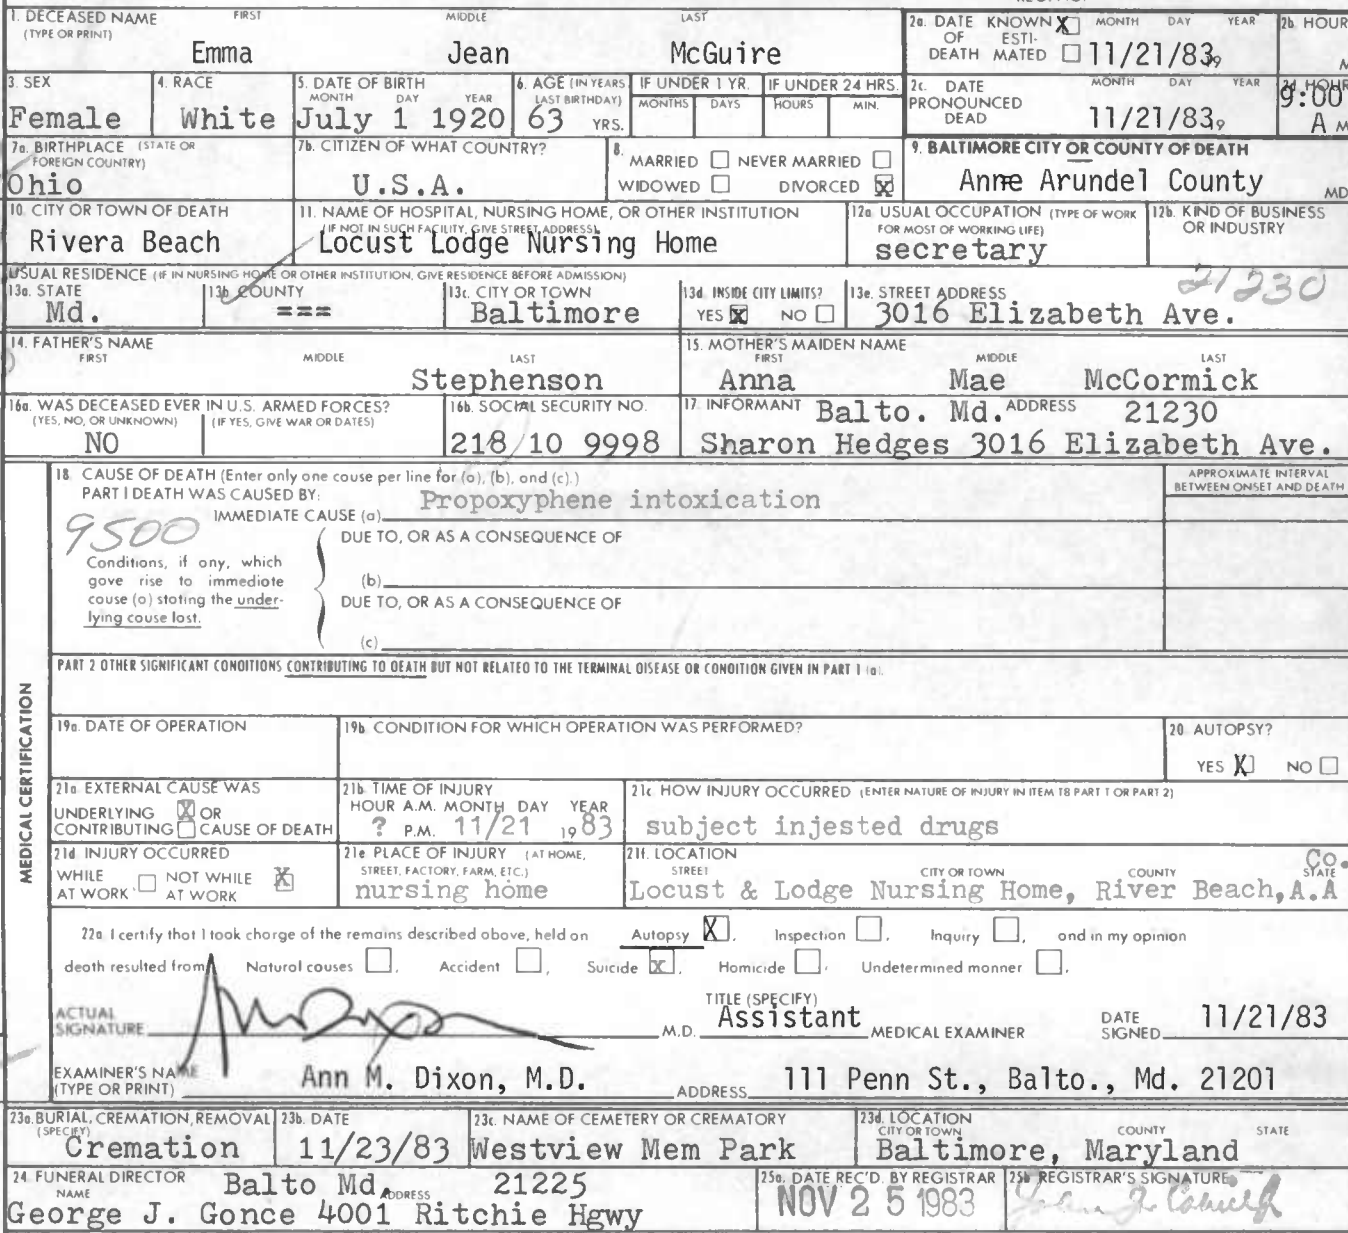 1. DECEASED NAME FIRST MIDDLE LAST
(TYPE OR PRINT)
Emma Jean McGuire
2a. DATE KNOWN X MONTH DAY YEAR
OF ESTI-
DEATH MATED 11/21/83
2b. HOUR
M
3. SEX
Female
4. RACE
White
5. DATE OF BIRTH
MONTH DAY YEAR
July 1 1920
6. AGE (IN YEARS
LAST BIRTHDAY)
63 YRS.
IF UNDER 1 YR.
MONTHS DAYS
IF UNDER 24 HRS.
HOURS MIN.
2c. DATE MONTH DAY YEAR
PRONOUNCED
DEAD 11/21/83
2d. HOUR
9:00
A M
7a. BIRTHPLACE (STATE OR
FOREIGN COUNTRY)
Ohio
7b. CITIZEN OF WHAT COUNTRY?
U.S.A.
8.
MARRIED NEVER MARRIED
WIDOWED DIVORCED X
9. BALTIMORE CITY OR COUNTY OF DEATH
Anne Arundel County MD
10. CITY OR TOWN OF DEATH
Rivera Beach
11. NAME OF HOSPITAL, NURSING HOME, OR OTHER INSTITUTION
(IF NOT IN SUCH FACILITY, GIVE STREET ADDRESS)
Locust Lodge Nursing Home
12a. USUAL OCCUPATION (TYPE OF WORK
FOR MOST OF WORKING LIFE)
secretary
12b. KIND OF BUSINESS
OR INDUSTRY
USUAL RESIDENCE (IF IN NURSING HOME OR OTHER INSTITUTION, GIVE RESIDENCE BEFORE ADMISSION)
21230
13a. STATE
Md.
13b. COUNTY
===
13c. CITY OR TOWN
Baltimore
13d. INSIDE CITY LIMITS?
YES X NO
13e. STREET ADDRESS
3016 Elizabeth Ave.
14. FATHER'S NAME
FIRST MIDDLE LAST
Stephenson
15. MOTHER'S MAIDEN NAME
FIRST MIDDLE LAST
Anna Mae McCormick
16a. WAS DECEASED EVER IN U.S. ARMED FORCES?
(YES, NO, OR UNKNOWN) (IF YES, GIVE WAR OR DATES)
NO
16b. SOCIAL SECURITY NO.
218 10 9998
17. INFORMANT Balto. Md. ADDRESS 21230
Sharon Hedges 3016 Elizabeth Ave.
MEDICAL CERTIFICATION
18. CAUSE OF DEATH (Enter only one cause per line for (a), (b), and (c).)
PART I DEATH WAS CAUSED BY:
IMMEDIATE CAUSE (a) Propoxyphene intoxication
APPROXIMATE INTERVAL
BETWEEN ONSET AND DEATH
9500
DUE TO, OR AS A CONSEQUENCE OF
Conditions, if any, which
gave rise to immediate
cause (a) stating the under-
lying cause last.
(b)
DUE TO, OR AS A CONSEQUENCE OF
(c)
PART 2 OTHER SIGNIFICANT CONDITIONS CONTRIBUTING TO DEATH BUT NOT RELATED TO THE TERMINAL DISEASE OR CONDITION GIVEN IN PART 1 (a).
19a. DATE OF OPERATION
19b. CONDITION FOR WHICH OPERATION WAS PERFORMED?
20. AUTOPSY?
YES X NO
21a. EXTERNAL CAUSE WAS
UNDERLYING X OR
CONTRIBUTING CAUSE OF DEATH
21b. TIME OF INJURY
HOUR A.M. MONTH DAY YEAR
? P.M. 11/21 1983
21c. HOW INJURY OCCURRED (ENTER NATURE OF INJURY IN ITEM 18 PART 1 OR PART 2)
subject injested drugs
21d. INJURY OCCURRED
WHILE NOT WHILE X
AT WORK AT WORK
21e. PLACE OF INJURY (AT HOME,
STREET, FACTORY, FARM, ETC.)
nursing home
21f. LOCATION Co.
STREET CITY OR TOWN COUNTY STATE
Locust & Lodge Nursing Home, River Beach, A.A
22a. I certify that I took charge of the remains described above, held on Autopsy X, Inspection , Inquiry , and in my opinion
death resulted from Natural causes , Accident , Suicide X, Homicide , Undetermined manner .
TITLE (SPECIFY)
ACTUAL
SIGNATURE M.D. Assistant MEDICAL EXAMINER DATE
SIGNED 11/21/83
EXAMINER'S NAME
(TYPE OR PRINT) Ann M. Dixon, M.D. ADDRESS 111 Penn St., Balto., Md. 21201
23a. BURIAL, CREMATION, REMOVAL
(SPECIFY)
Cremation
23b. DATE
11/23/83
23c. NAME OF CEMETERY OR CREMATORY
Westview Mem Park
23d. LOCATION
CITY OR TOWN COUNTY STATE
Baltimore, Maryland
24. FUNERAL DIRECTOR Balto Md. 21225
NAME ADDRESS
George J. Gonce 4001 Ritchie Hgwy
25a. DATE REC'D. BY REGISTRAR
NOV 25 1983
25b. REGISTRAR'S SIGNATURE